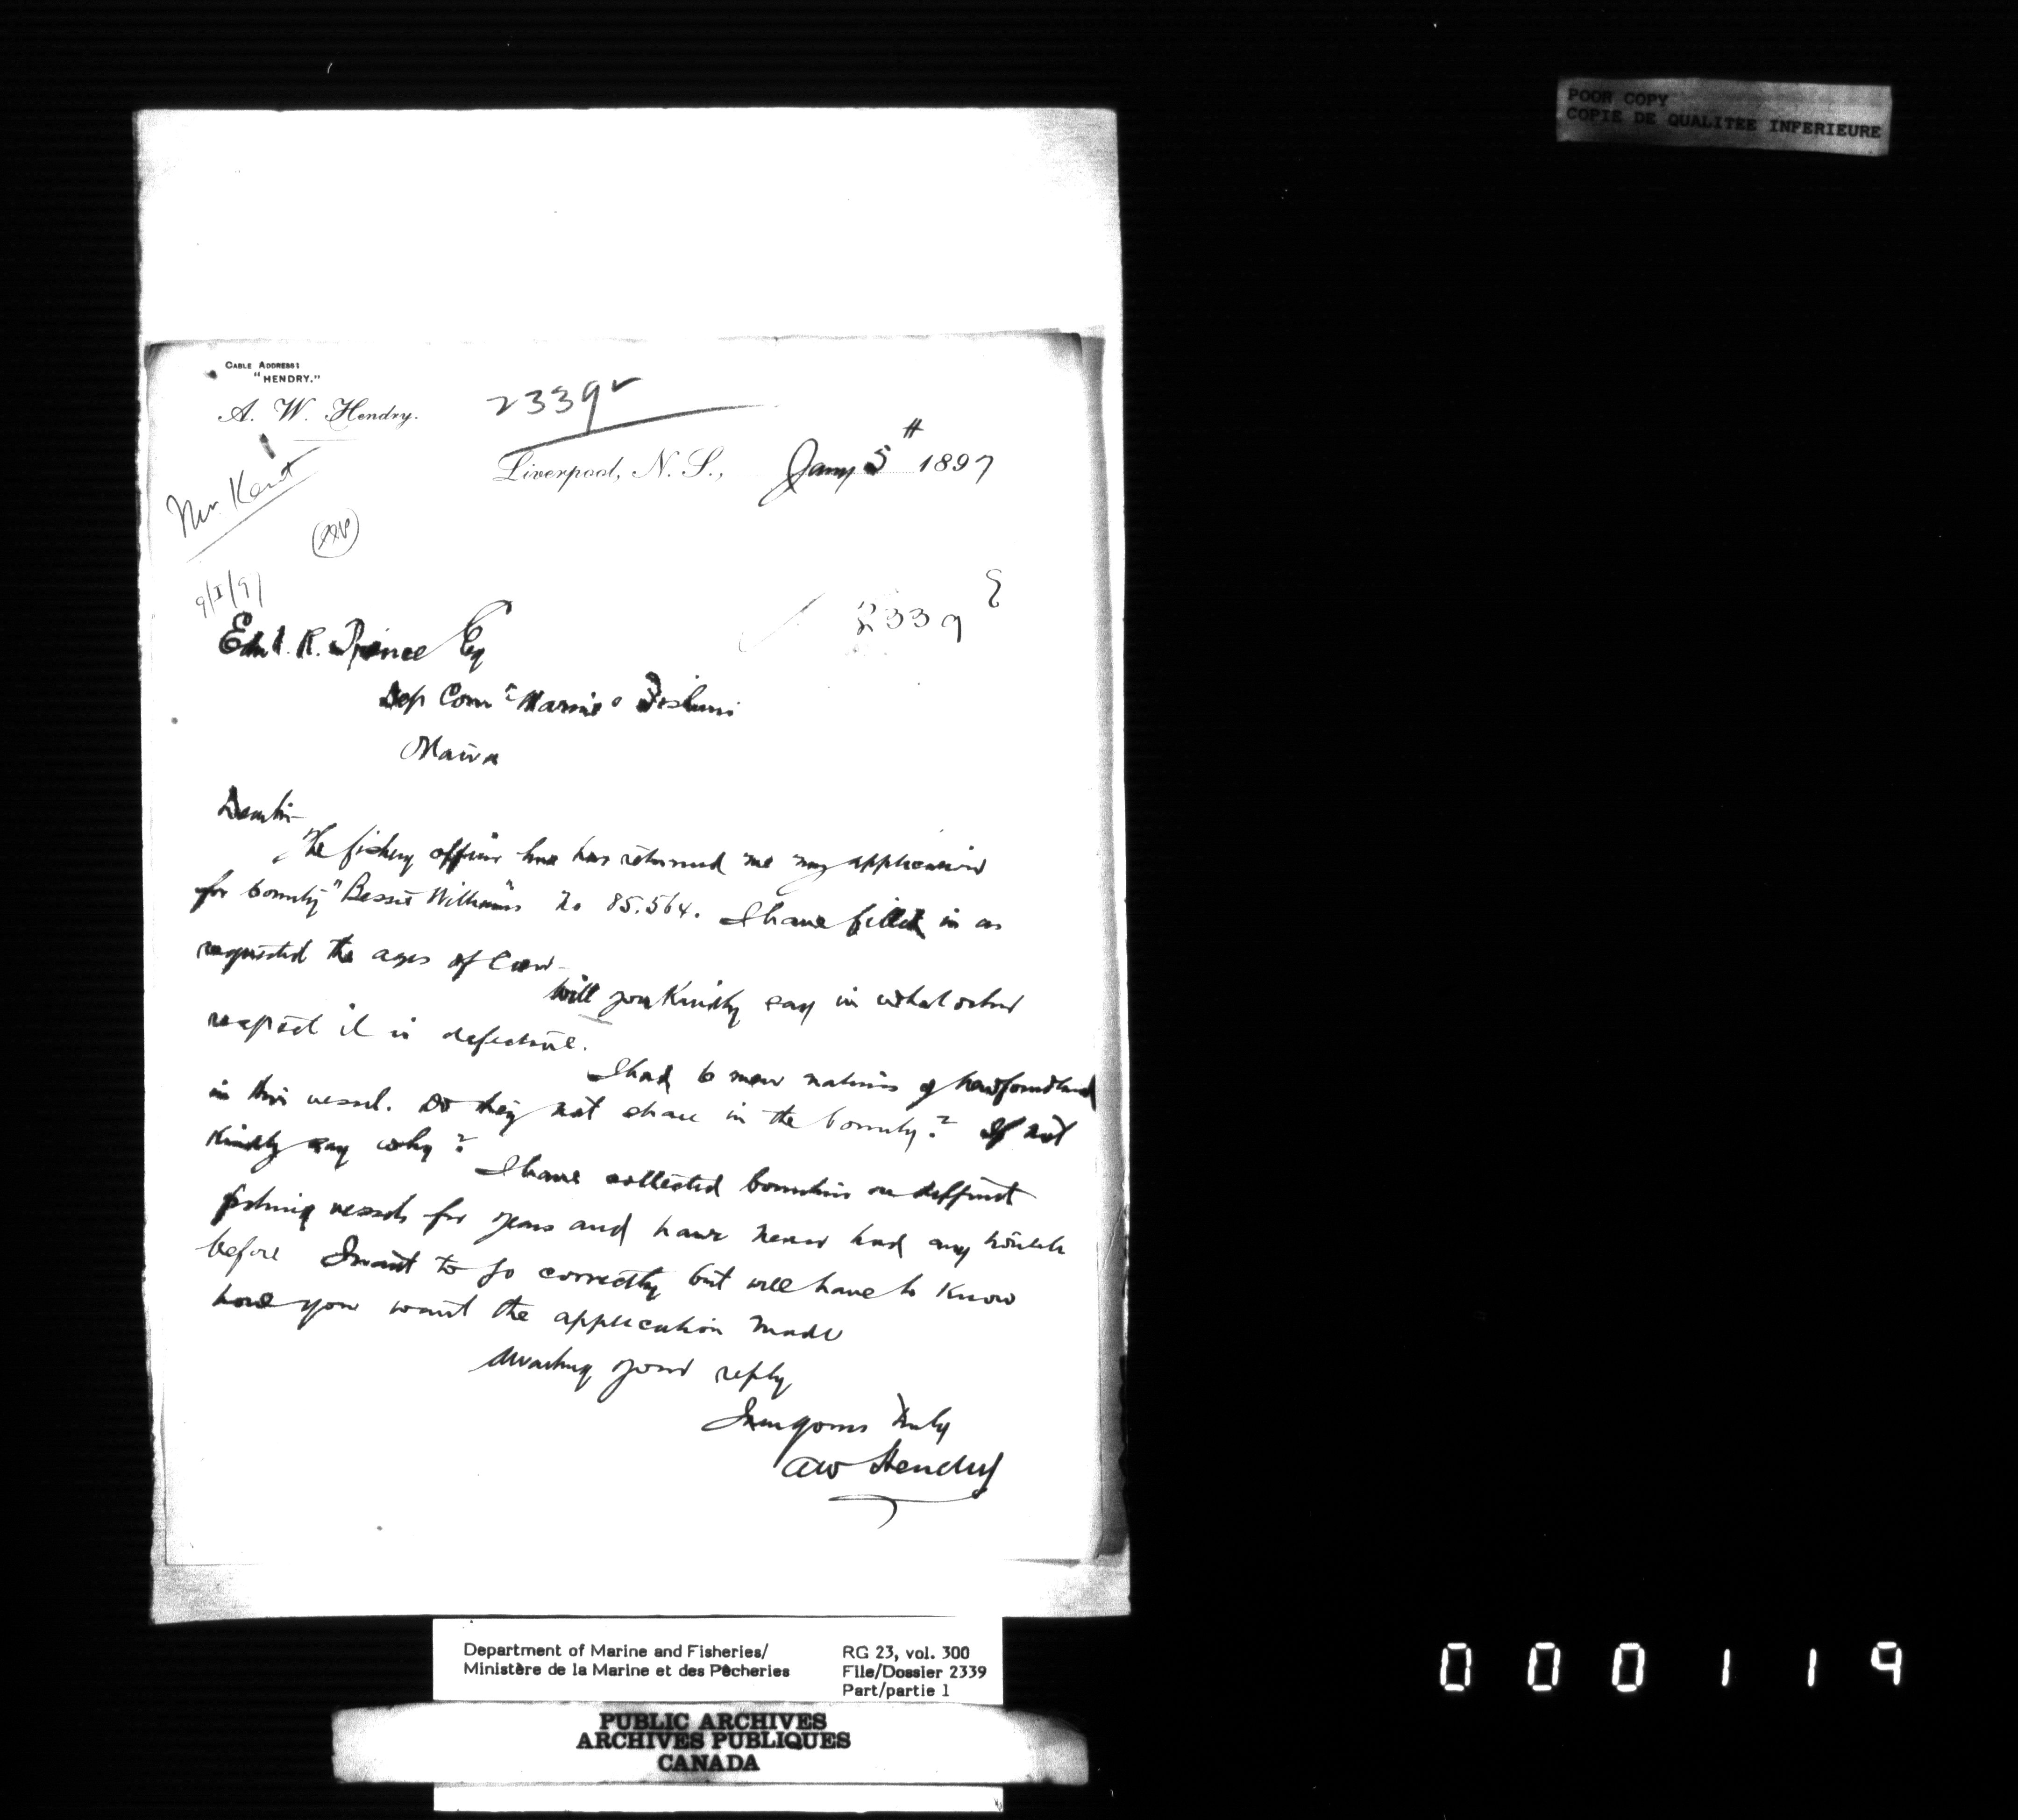 POOR COPY
COPIE DE QUALITEE INFERIEURE
CABLE ADDRESS:
"HENDRY."
A. W. Hendry.
2339
Liverpool, N. S., Jany 5th 1897
Mr. Kent
9/I/97
2339
Edwd. R. Prince Esq
Dep Comr Marine & Fisheries
Ottawa
Dear Sir
The fishery officer here has returned me my application
for bounty "Bessie Williams" No 85.564. I have filled in as
requested the ages of Crew-
Will you Kindly say in what other
respect it is defective.
I had 6 men natives of Newfoundland
in this vessel. Do they not share in the bounty? If not
Kindly say why?
I have collected bounties on different
fishing vessels for years and have never had any trouble
before I want to go correctly but will have to Know
how you want the application made
Awaiting your reply
I am yours truly
AW Hendry
Department of Marine and Fisheries/
Ministère de la Marine et des Pêcheries
RG 23, vol. 300
File/Dossier 2339
Part/partie 1
PUBLIC ARCHIVES
ARCHIVES PUBLIQUES
CANADA
000119